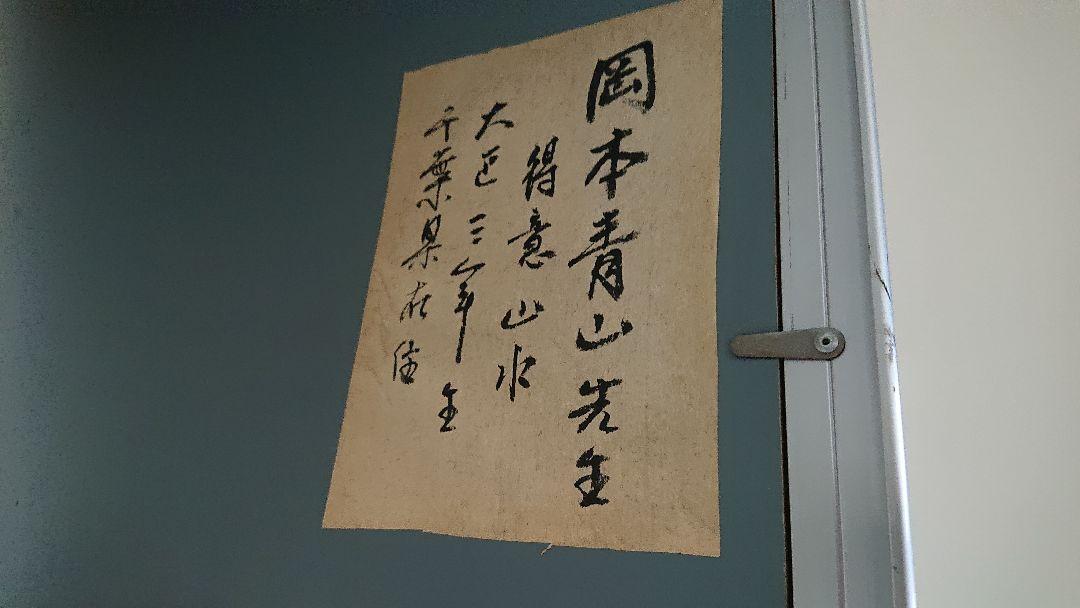 岡本青山先生
得意山水
大正三年生
千葉県在住